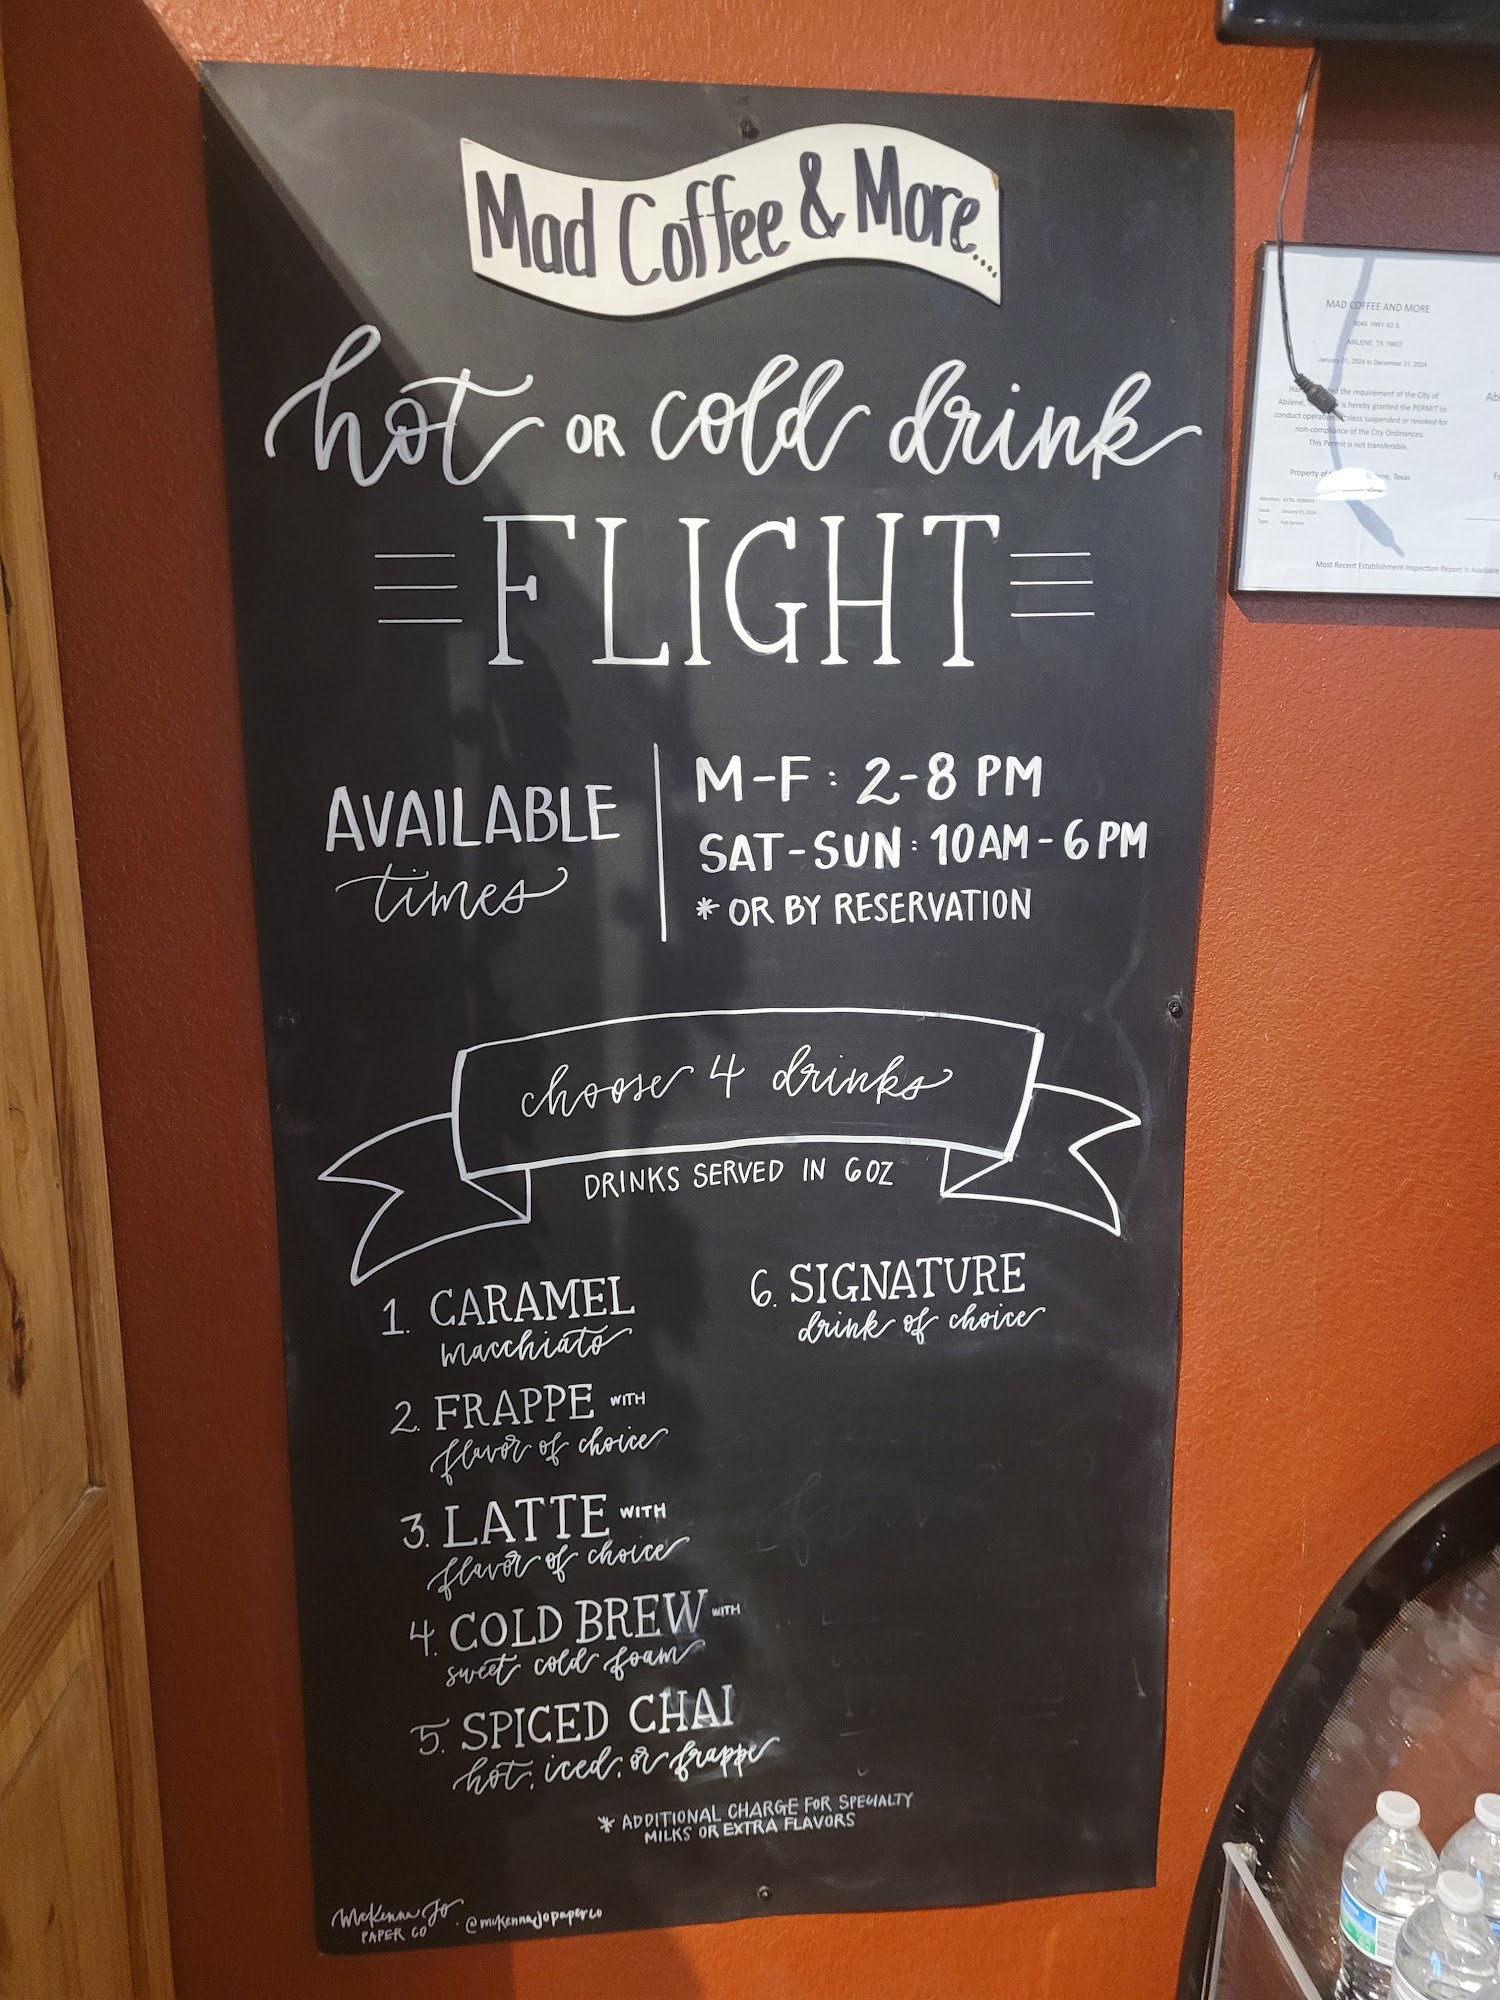 Mad Coffee & More....
hot OR cold drink
FLIGHT
AVAILABLE
times
M-F: 2-8 PM
SAT-SUN: 10AM-6PM
* OR BY RESERVATION
choose 4 drinks
DRINKS SERVED IN 6OZ
1. CARAMEL
macchiato
2. FRAPPE WITH
flavor of choice
3. LATTE WITH
flavor of choice
4. COLD BREW WITH
sweet cold foam
5. SPICED CHAI
hot, iced, or frappe
6. SIGNATURE
drink of choice
* ADDITIONAL CHARGE FOR SPECIALTY
MILKS OR EXTRA FLAVORS
McKenna Jo
PAPER CO
@mckennajopaperco
MAD COFFEE AND MORE
HWY 83 S
ABILENE, TX 79602
January 01, 2024 to December 31, 2024
the requirement of the City of
Abilene, is hereby granted the PERMIT to
conduct unless suspended or revoked for
non-compliance of the City Ordinances.
This Permit is not transferable.
Property of Texas
Attention: ATTN: PERMITS
Issue: January 01, 2024
Type: Full Service
Most Recent Establishment Inspection Report is Available